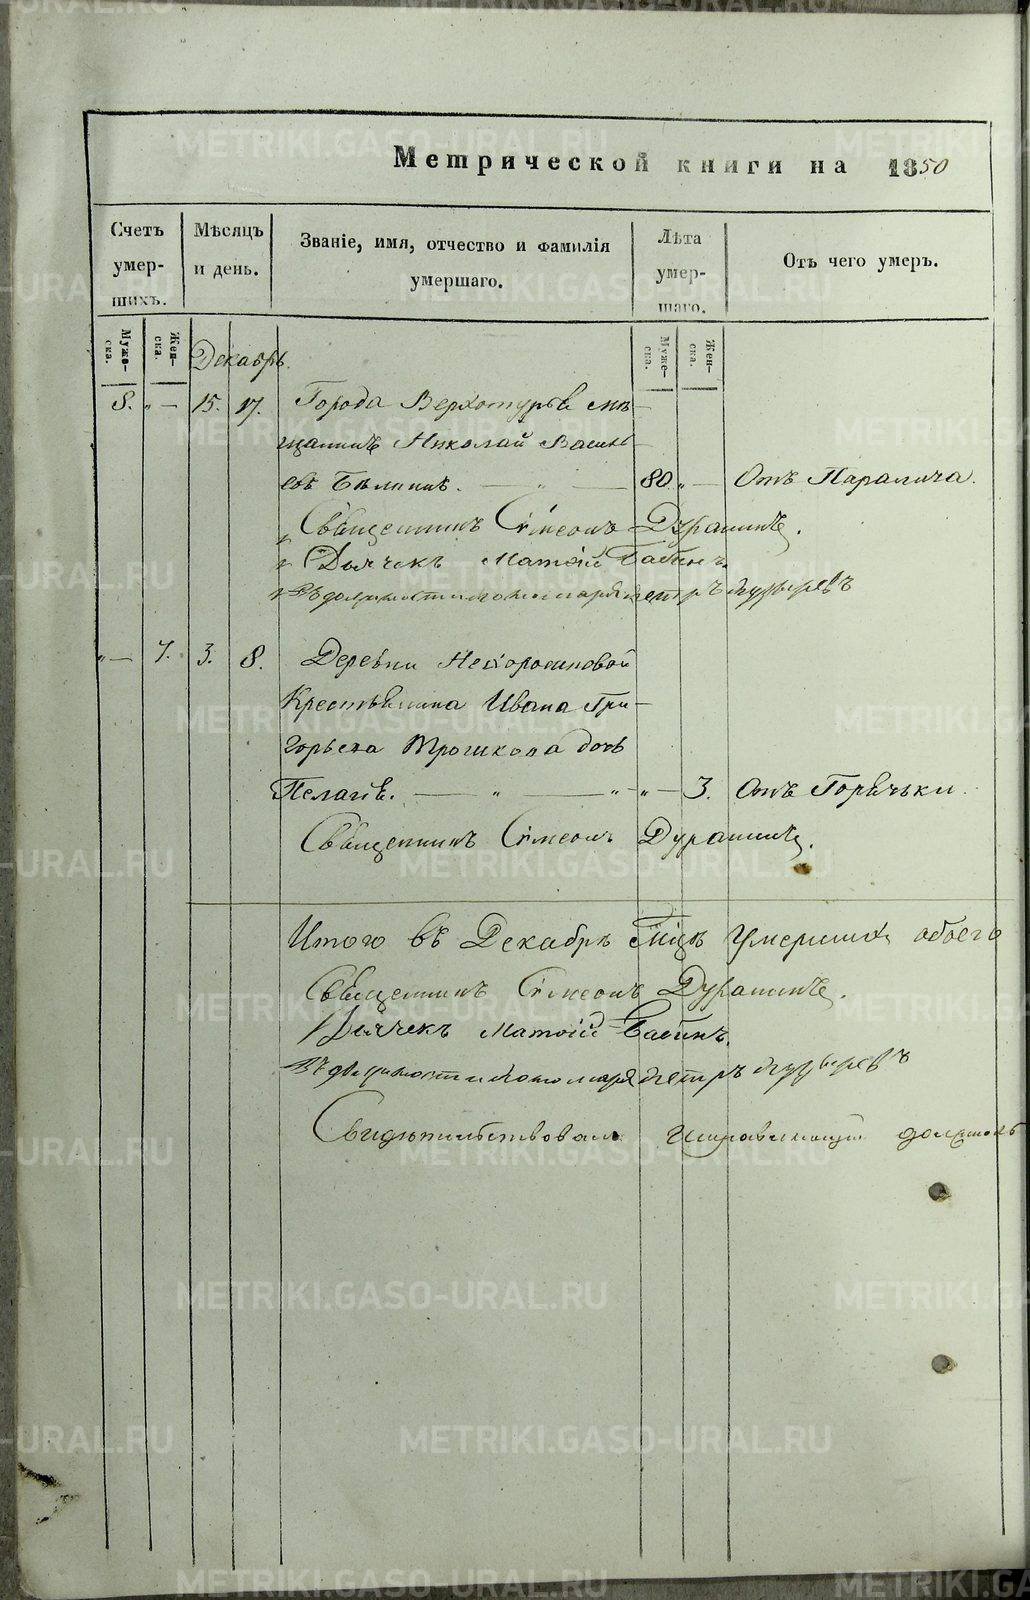 Метрической книги на 1850
Счетъ умер-шихъ.
Мѣсяцъ и день.
Званіе, имя, отчество и фамилія умершаго.
Лѣта умер-шаго.
Отъ чего умеръ.
Муже-ска.
Жен-ска.
Муже-ска.
Жен-ска.
Декабрь.
8. " — 15. 17. Города Верхотурья мѣ-
щанинъ Николай Василь-
евъ Бѣлкинъ. — " — 80. " — Отъ Паралича.
Священникъ Сѵмеонъ
Дьячекъ Матѳій Бабинъ.
Въ должности пономаря Петръ
" — 7. 3. 8. Деревни
Крестьянина Ивана Гри-
горьева Трошкова дочь
Пелагія. — " — " — " — 3. Отъ Горячьки.
Священникъ Сѵмеонъ
Итого въ Декабрѣ м-цѣ умершихъ обоего
Священникъ Сѵмеонъ
Дьячекъ Матѳій Бабинъ.
Въ должности пономаря Петръ
Свидѣтельствовалъ исправляющій должность
METRIKI.GASO-URAL.RU